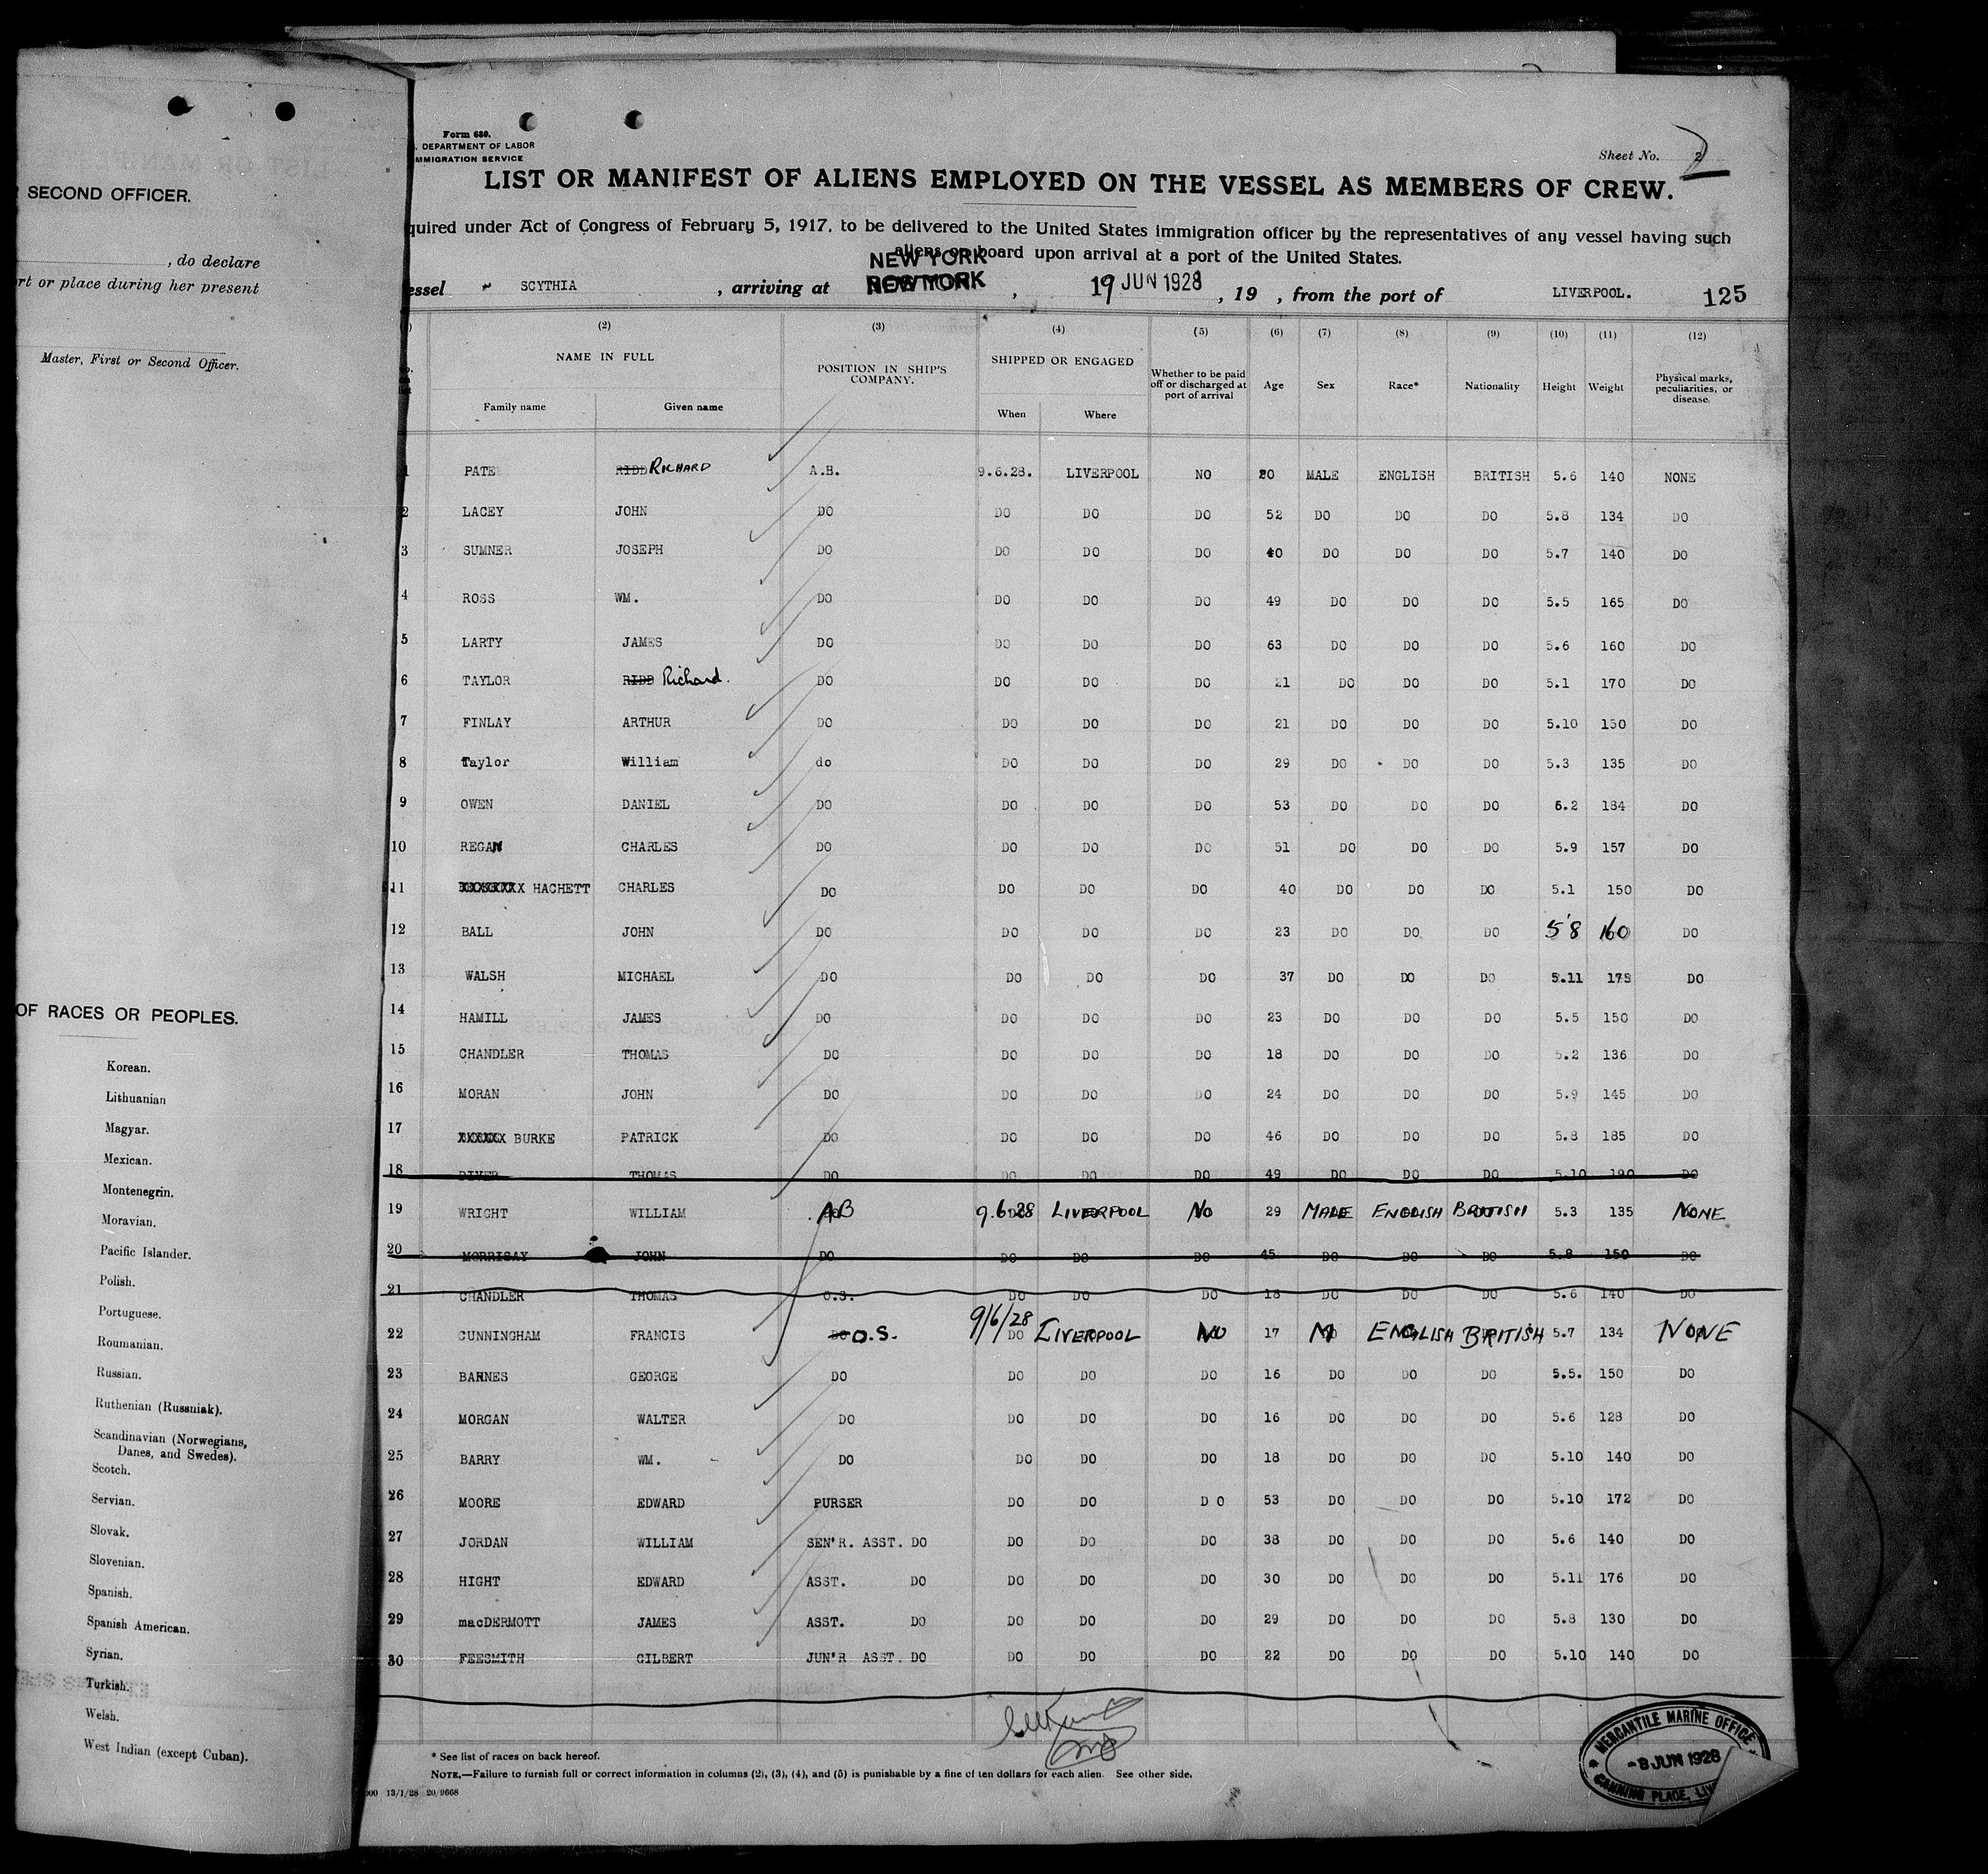 SECOND OFFICER.
, do declare
rt or place during her present
Master, First or Second Officer.
OF RACES OR PEOPLES.
Korean.
Lithuanian
Magyar.
Mexican.
Montenegrin.
Moravian.
Pacific Islander.
Polish.
Portuguese.
Roumanian.
Russian.
Ruthenian (Russniak).
Scandinavian (Norwegians,
Danes, and Swedes).
Scotch.
Servian.
Slovak.
Slovenian.
Spanish.
Spanish American.
Syrian.
Turkish.
Welsh.
West Indian (except Cuban).
Form 680.
DEPARTMENT OF LABOR
MMIGRATION SERVICE
Sheet No. 2
2
LIST OR MANIFEST OF ALIENS EMPLOYED ON THE VESSEL AS MEMBERS OF CREW.
quired under Act of Congress of February 5, 1917, to be delivered to the United States immigration officer by the representatives of any vessel having such
aliens on board upon arrival at a port of the United States.
NEW YORK
essel SCYTHIA , arriving at NEW YORK , 19 JUN 1928 , 19 , from the port of LIVERPOOL. 125
(2) (3) (4) (5) (6) (7) (8) (9) (10) (11) (12)
NAME IN FULL POSITION IN SHIP'S COMPANY. SHIPPED OR ENGAGED Whether to be paid off or discharged at port of arrival Age Sex Race* Nationality Height Weight Physical marks, peculiarities, or disease.
Family name Given name When Where
1 PATE RIDD RICHARD A.B. 9.6.28. LIVERPOOL NO 20 MALE ENGLISH BRITISH 5.6 140 NONE
2 LACEY JOHN DO DO DO DO 52 DO DO DO 5.8 134 DO
3 SUMNER JOSEPH DO DO DO DO 40 DO DO DO 5.7 140 DO
4 ROSS WM. DO DO DO DO 49 DO DO DO 5.5 165 DO
5 LARTY JAMES DO DO DO DO 63 DO DO DO 5.6 160 DO
6 TAYLOR RIDD Richard. DO DO DO DO 21 DO DO DO 5.1 170 DO
7 FINLAY ARTHUR DO DO DO DO 21 DO DO DO 5.10 150 DO
8 Taylor William do DO DO DO 29 DO DO DO 5.3 135 DO
9 OWEN DANIEL DO DO DO DO 53 DO DO DO 6.2 184 DO
10 REGAN CHARLES DO DO DO DO 51 DO DO DO 5.9 157 DO
11 HACHETT CHARLES DO DO DO DO 40 DO DO DO 5.1 150 DO
12 BALL JOHN DO DO DO DO 23 DO DO DO 5'8 160 DO
13 WALSH MICHAEL DO DO DO DO 37 DO DO DO 5.11 175 DO
14 HAMILL JAMES DO DO DO DO 23 DO DO DO 5.5 150 DO
15 CHANDLER THOMAS DO DO DO DO 18 DO DO DO 5.2 136 DO
16 MORAN JOHN DO DO DO DO 24 DO DO DO 5.9 145 DO
17 BURKE PATRICK DO DO DO DO 46 DO DO DO 5.8 185 DO
18 DIVER THOMAS DO DO DO DO 49 DO DO DO 5.10 190 DO
19 WRIGHT WILLIAM AB 9.6.28 LIVERPOOL NO 29 MALE ENGLISH BRITISH 5.3 135 NONE
20 MORRISAY JOHN DO DO DO DO 45 DO DO DO 5.8 150 DO
21 CHANDLER THOMAS O.S. DO DO DO 18 DO DO DO 5.6 140 DO
22 CUNNINGHAM FRANCIS DO O.S. 9/6/28 DO LIVERPOOL NO 17 M ENGLISH BRITISH 5.7 134 NONE
23 BARNES GEORGE DO DO DO DO 16 DO DO DO 5.5. 150 DO
24 MORGAN WALTER DO DO DO DO 16 DO DO DO 5.6 128 DO
25 BARRY WM. DO DO DO DO 18 DO DO DO 5.10 140 DO
26 MOORE EDWARD PURSER DO DO D O 53 DO DO DO 5.10 172 DO
27 JORDAN WILLIAM SEN'R. ASST. DO DO DO DO 38 DO DO DO 5.6 140 DO
28 HIGHT EDWARD ASST. DO DO DO DO 30 DO DO DO 5.11 176 DO
29 macDERMOTT JAMES ASST. DO DO DO DO 29 DO DO DO 5.8 130 DO
30 FEESMITH GILBERT JUN'R ASST. DO DO DO DO 22 DO DO DO 5.10 140 DO
* See list of races on back hereof.
NOTE.—Failure to furnish full or correct information in columns (2), (3), (4), and (5) is punishable by a fine of ten dollars for each alien. See other side.
000 13/1/28 20/9668
MERCANTILE MARINE OFFICE
-8 JUN 1928
CANNING PLACE,